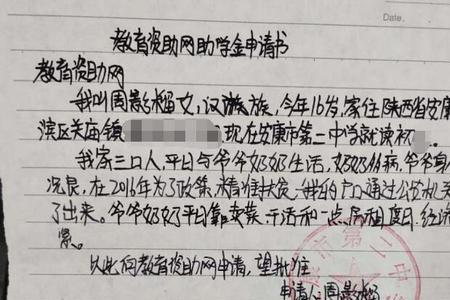 Date.
教育资助网助学金申请书
教育资助网
我叫周影, 汉族, 今年16岁, 家住陕西省安康
滨区关庙镇 现在安康市第二中学就读初
我家三口人, 平日与爷爷奶奶生活, 奶奶 病, 爷爷身
况良, 在2016年为了政策 精准扶贫, 我的户口通过公安机关
了出来。爷爷奶奶平日靠卖菜、干活和一点房租度日, 经济
紧。
以此向教育资助网申请, 望批准
申请人:周影
市第二中